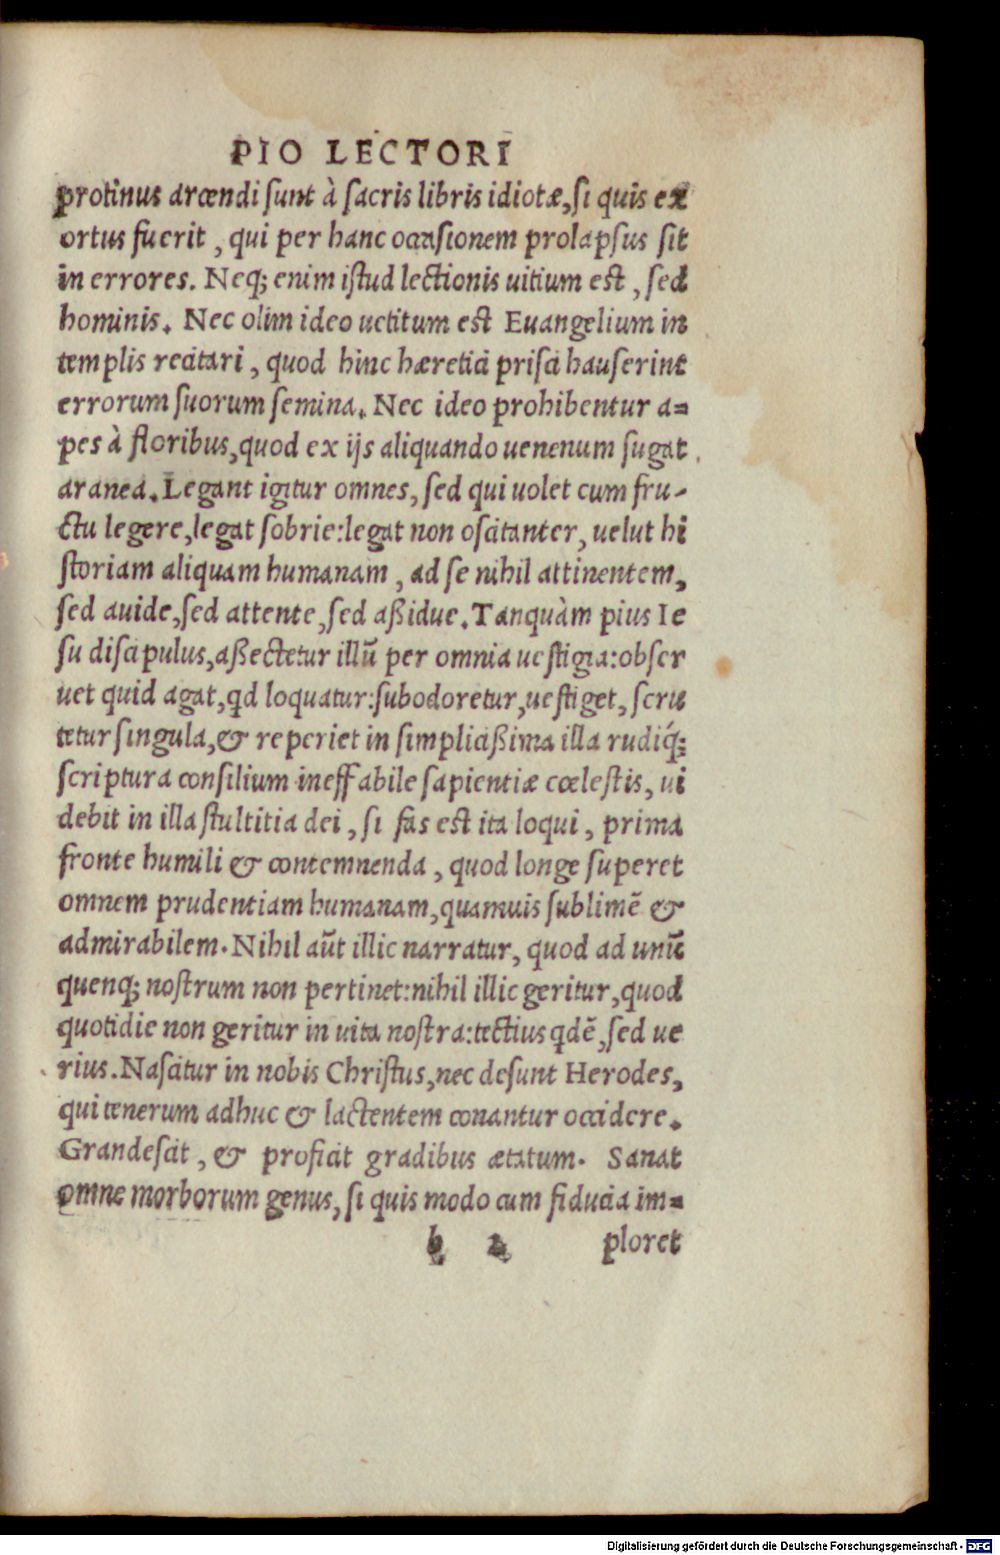 PIO LECTORI
protinus arcendi sunt à sacris libris idiotæ, si quis ex
ortus fuerit, qui per hanc occasionem prolapsus sit
in errores. Neq; enim istud lectionis uitium est, sed
hominis. Nec olim ideo uetitum est Euangelium in
templis recitari, quod hinc hæretici prisci hauserint
errorum suorum semina. Nec ideo prohibentur a=
pes à floribus, quod ex ijs aliquando uenenum sugat
aranea. Legant igitur omnes, sed qui uolet cum fru-
ctu legere, legat sobrie: legat non oscitanter, uelut hi
storiam aliquam humanam, ad se nihil attinentem,
sed auide, sed attente, sed aßidue. Tanquàm pius Ie
su discipulus, aßectetur illũ per omnia uestigia: obser
uet quid agat, qd loquatur: subodoretur, uestiget, scru
tetur singula, & reperiet in simplicißima illa rudiq́;
scriptura consilium ineffabile sapientiæ cœlestis, ui
debit in illa stultitia dei, si fas est ita loqui, prima
fronte humili & contemnenda, quod longe superet
omnem prudentiam humanam, quamuis sublimẽ &
admirabilem. Nihil aũt illic narratur, quod ad unũ
quenq; nostrum non pertinet: nihil illic geritur, quod
quotidie non geritur in uita nostra: tectius qdẽ, sed ue
rius. Nascitur in nobis Christus, nec desunt Herodes,
qui tenerum adhuc & lactentem conantur occidere.
Grandescit, & proficit gradibus ætatum. Sanat
omne morborum genus, si quis modo cum fiducia im=
b 2 ploret
Digitalisierung gefördert durch die Deutsche Forschungsgemeinschaft - DFG